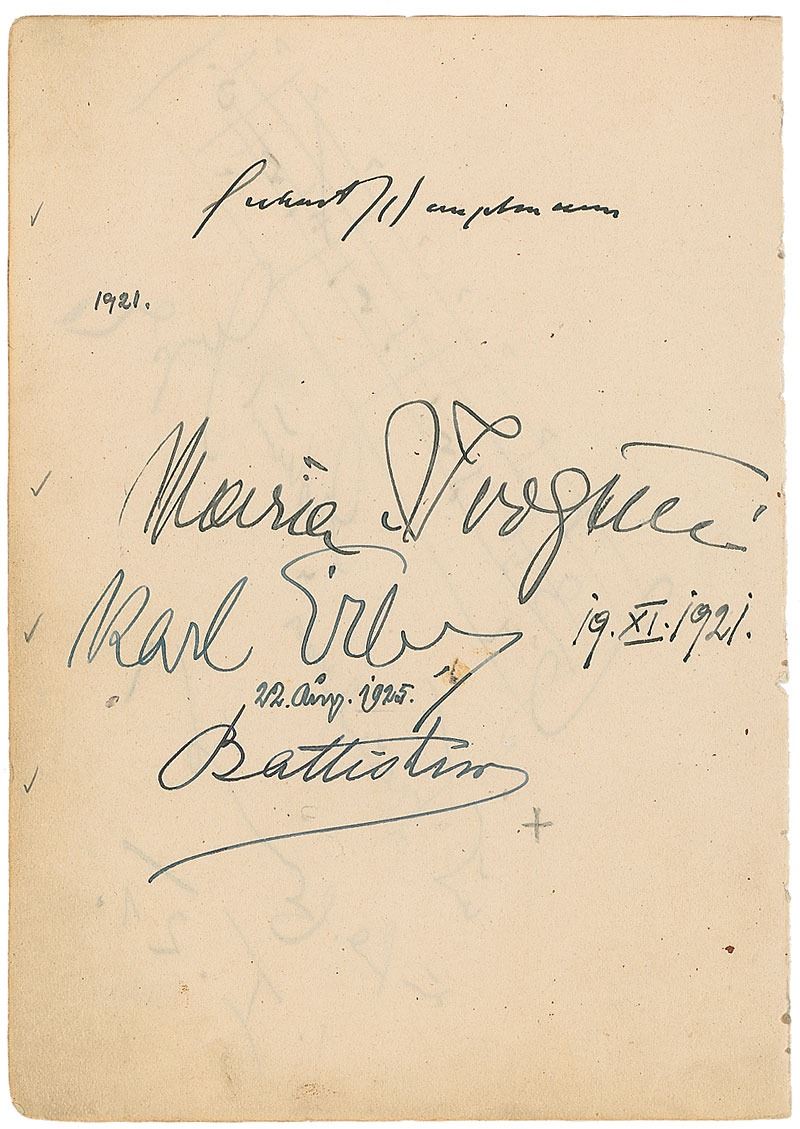 Gerhart Hauptmann
1921.
Maria Ivogün
Karl Erb
19.XI.1921.
22. Aug. 1925.
Battistini